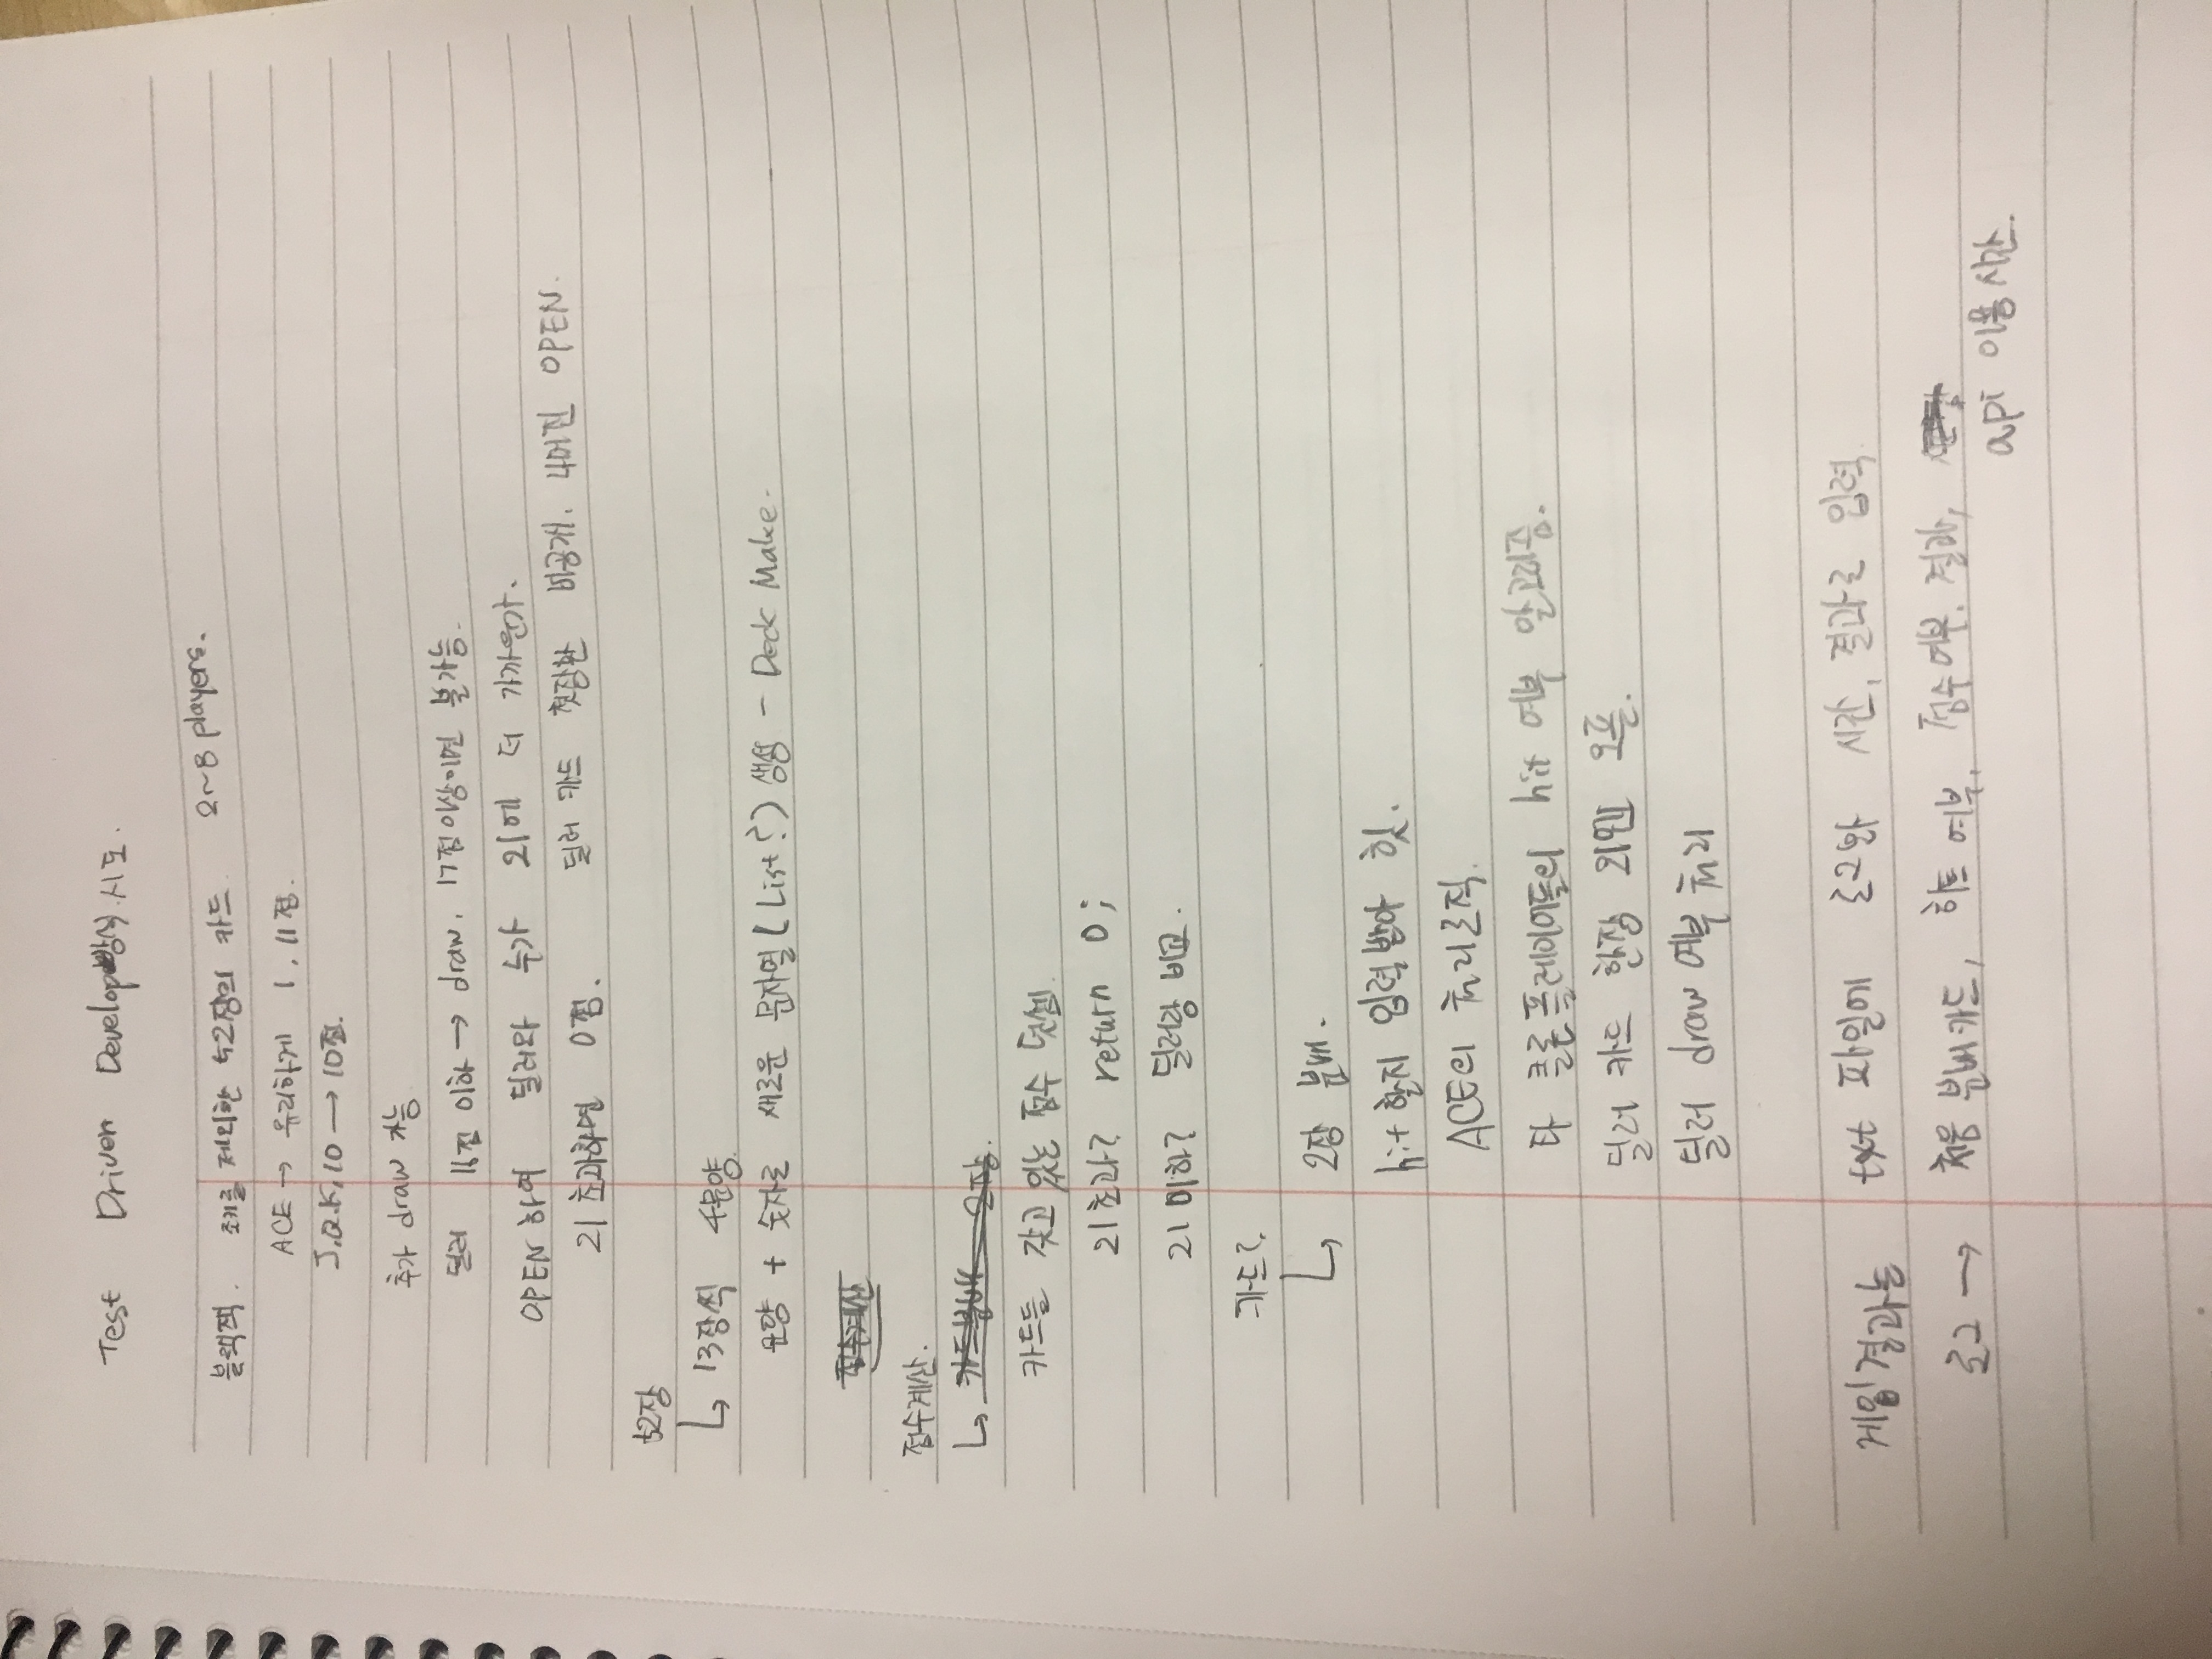 Test Driven Develop방식 시도.
블랙잭. 조커를 제외한 52장의 카드 2~8 players.
ACE → 유리하게 1, 11점.
J.Q.K.10 → 10점.
추가 draw 가능
딜러 16점 이하 → draw, 17점이상이면 불가능.
OPEN하여 딜러와 누가 21에 더 가까운가.
21 초과하면 0점. 딜러 카드 첫장만 비공개. 나머진 OPEN.
52장
↳ 13장씩 4문양.
문양 + 숫자로 새로운 문자열(List?) 생성 - Deck Make.
점수계산
점수계산.
↳ 카드분배 2장.
카드들 갖고 있는 점수 덧셈.
21 초과? return 0;
21 이하? 딜러랑 비교.
카드?
↳ 2장 분배.
hit 할지 입력받아 힛.
ACE의 처리로직.
타 클론 플레이어들의 hit 여부 알고리즘.
딜러 카드 한장 외엔 오픈.
딜러 draw 여부 처리
게임결과는 txt 파일에 로그와 시간, 결과로 입력
로그 → 처음 분배카드, 히트 여부, 점수여부. 결과,
api 이용 시간.